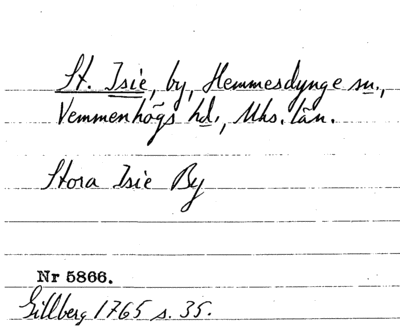 St. Isie, by, Hemmesdynge sn.,
Vemmenhögs hd., Mhs. län.
Stora Isie By
Nr 5866.
Gillberg 1765 s. 35.